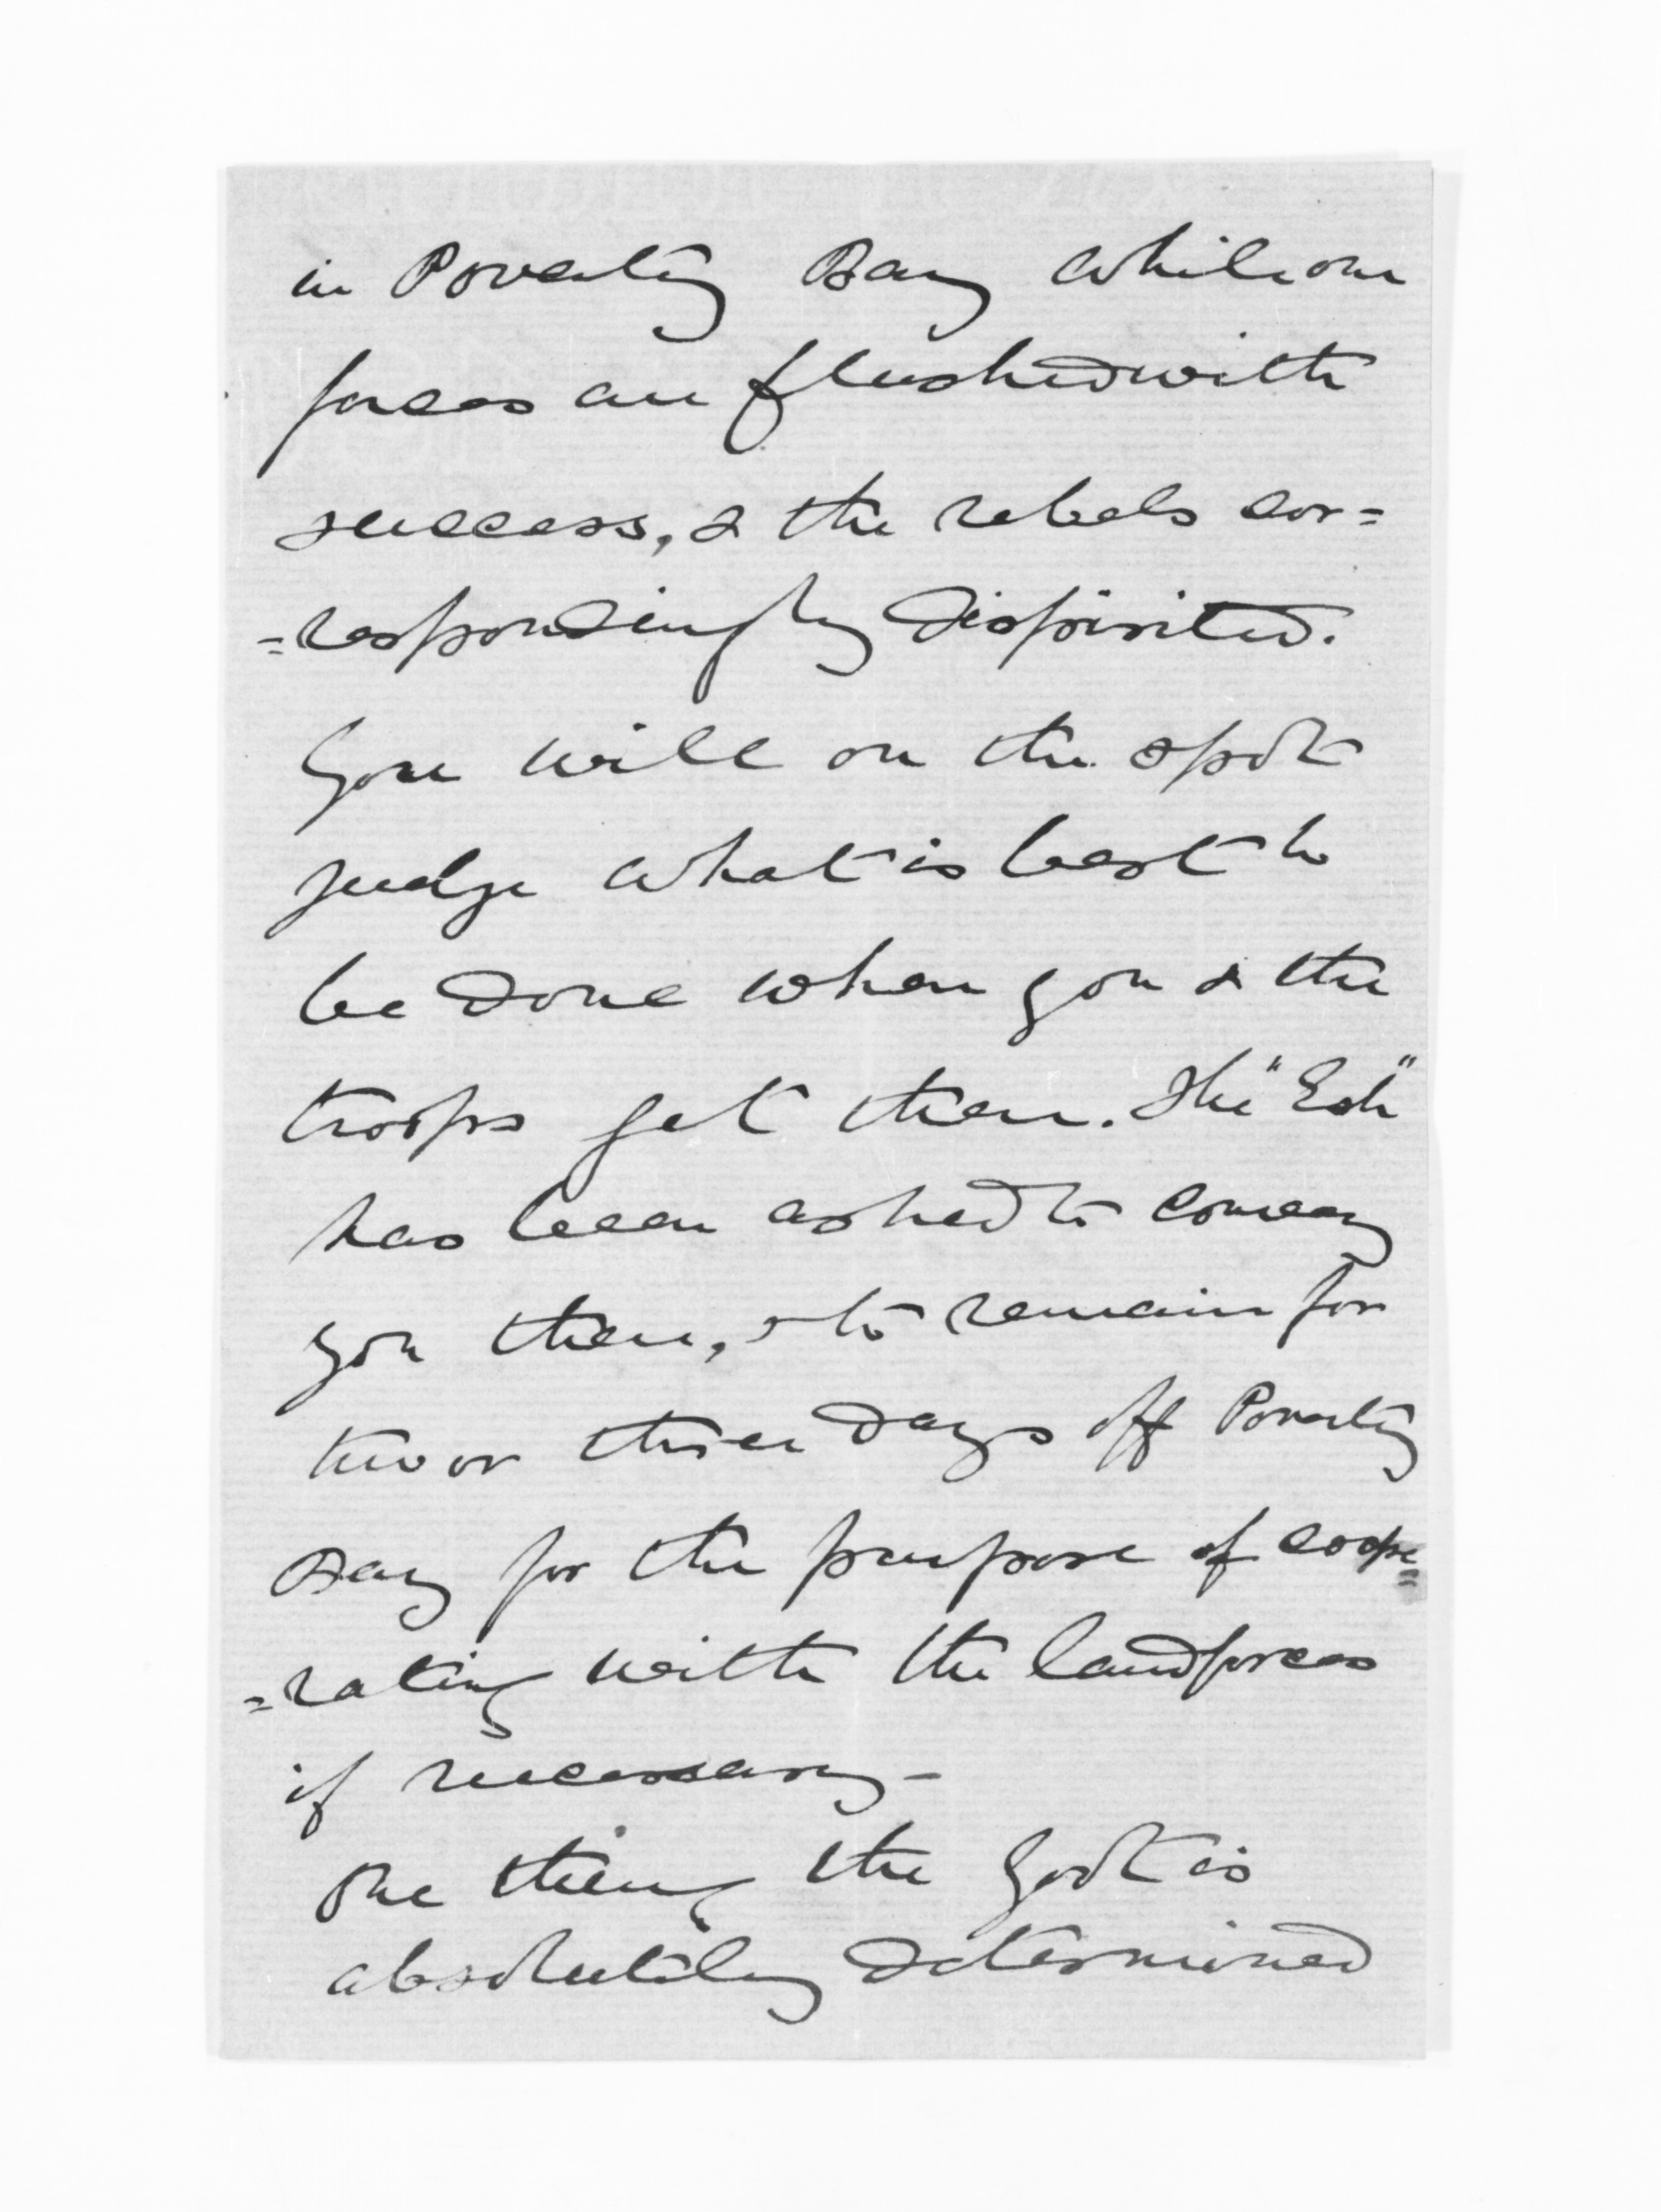 in Poverty Bay while our
forces are flushed with
success, & the rebels cor=
=respondingly dispirited.
You will on the spot
judge what is best to
be done when you & the
troops get there. The "Esk"
has been asked to convey
you there, & to remain for
two or three days off Poverty
Bay for the purpose of coope=
=rating with the land forces
if necessary -
One thing the Govt is
absolutely determined